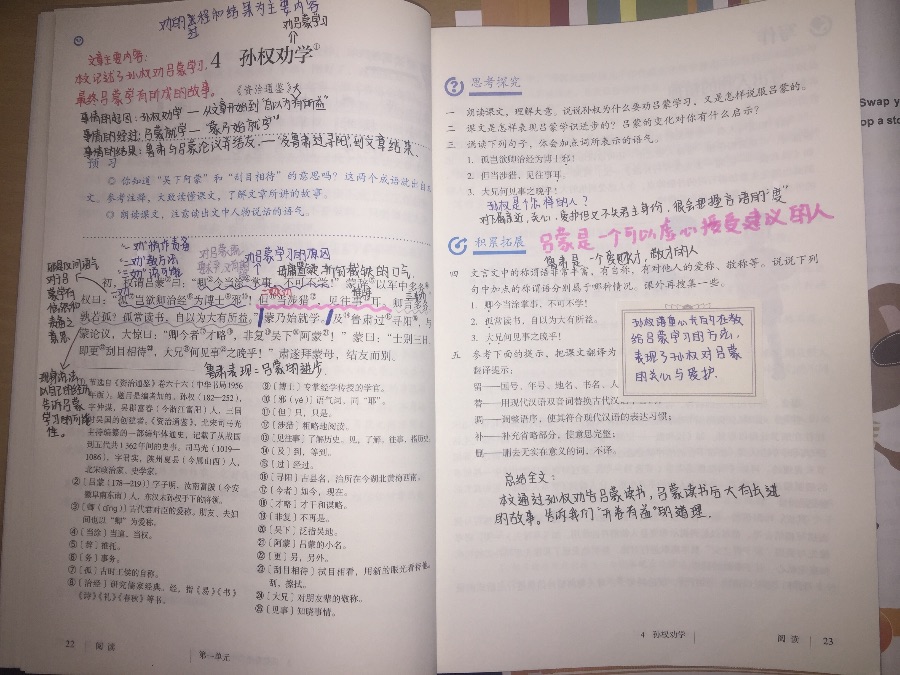 劝的过程和结果为主要内容
劝吕蒙学习
个
文章主要内容:
本文记述了孙权劝吕蒙学习,
最终吕蒙学有所成的故事。
4 孙权劝学①
《资治通鉴》
事情的起因:孙权劝学—从文章开始到"自以为有所益"
事情的经过:吕蒙就学—"蒙乃始就学"
事情的结果:鲁肃与吕蒙论议并结友.—及鲁肃过寻阳,到文章结束.
预 习
◎ 你知道"吴下阿蒙"和"刮目相待"的意思吗?这两个成语就出自
文。参考注释,大致读懂课文,了解文章所讲的故事。
◎ 朗读课文,注意读出文中人物说话的语气。
吕蒙学习的原因
初,权谓吕蒙②曰:"卿③今当涂④掌事,不可不学!"蒙辞⑤以军中多务⑥
权曰:"孤⑦岂欲卿治经⑧为博士⑨邪⑩!但⑪当涉猎⑫,见往事⑬耳。卿言多
孰若孤?孤常读书,自以为大有所益。"蒙乃始就学。及⑭鲁肃过⑮寻阳⑯,与
蒙论议,大惊曰:"卿今者⑰才略⑱,非复⑲吴下⑳阿蒙!"蒙曰:"士别三日,
即更刮目相待,大兄何见事之晚乎!"肃遂拜蒙母,结友而别。
鲁肃表现:吕蒙的进步
① 节选自《资治通鉴》卷六十六(中华书局1956
年版)。题目是编者加的。孙权(182—252),
字仲谋,吴郡富春(今浙江富阳)人,三国
时吴国的创建者。《资治通鉴》,北宋司马光
主持编纂的一部编年体通史,记载了从战国
到五代共1362年间的史事。司马光(1019—
1086),字君实,陕州夏县(今属山西)人,
北宋政治家、史学家。
② 〔吕蒙(178—219)〕字子明,汝南富陂(今安
徽阜南东南)人,东汉末孙权手下的将领。
③ 〔卿(qīng)〕古代君对臣的爱称。朋友、夫妇
间也以"卿"为爱称。
④ 〔当涂〕当道、当权。
⑤ 〔辞〕推托。
⑥ 〔务〕事务。
⑦ 〔孤〕古时王侯的自称。
⑧ 〔治经〕研究儒家经典。经,指《易》《书》
《诗》《礼》《春秋》等书。
⑨ 〔博士〕专掌经学传授的学官。
⑩ 〔邪(yé)〕语气词,同"耶"。
⑪ 〔但〕只,只是。
⑫ 〔涉猎〕粗略地阅读。
⑬ 〔见往事〕了解历史。见,了解。往事,指历史
⑭ 〔及〕到,等到。
⑮ 〔过〕经过。
⑯ 〔寻阳〕古县名,治所在今湖北黄梅西南。
⑰ 〔今者〕如今,现在。
⑱ 〔才略〕才干和谋略。
⑲ 〔非复〕不再是。
⑳ 〔吴下〕泛指吴地。
㉑ 〔阿蒙〕吕蒙的小名。
㉒ 〔更〕另,另外。
㉓ 〔刮目相待〕拭目相看,用新的眼光看待他
刮,擦拭。
㉔ 〔大兄〕对朋友辈的敬称。
㉕ 〔见事〕知晓事情。
22 阅 读
第一单元
思考探究
一 朗读课文,理解大意。说说孙权为什么要劝吕蒙学习,又是怎样说服吕蒙的。
二 课文是怎样表现吕蒙学识进步的?吕蒙的变化对你有什么启示?
三 熟读下列句子,体会加点词所表示的语气。
1. 孤岂欲卿治经为博士邪!
2. 但当涉猎,见往事耳。
3. 大兄何见事之晚乎!
孙权是个怎样的人?
对下属亲近,关心,爱护但又不失君主身份,很会把握言语的"度"
积累拓展
吕蒙是一个可以虚心接受建议的人
鲁肃是一个爱才,敬才的人
四 文言文中的称谓语非常丰富,有自称,有对他人的爱称、敬称等。说说下列
句中加点的称谓语分别属于哪种情况。课外再搜集一些。
1. 卿今当涂掌事,不可不学!
2. 孤常读书,自以为大有所益。
3. 大兄何见事之晚乎!
五 参考下面的提示,把课文翻译为
翻译提示:
留——国号、年号、地名、书名、人
替——用现代汉语双音词替换古代汉
调——调整语序,使其符合现代汉语的表达习惯;
补——补充省略部分,使意思完整;
删——删去无实在意义的词,不译。
吕蒙学习的方法,
表现了孙权对吕蒙
的关心与爱护.
总结全文:
本文通过孙权劝告吕蒙读书,吕蒙读书后大有长进
的故事。告诉我们"开卷有益"的道理.
4 孙权劝学
阅 读 23
Swap y
op a sto